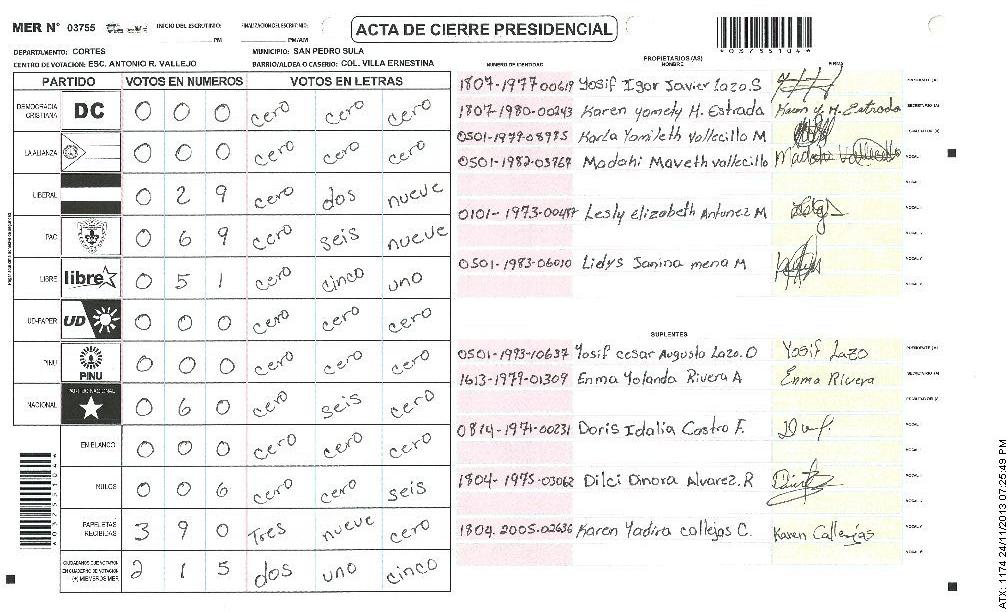 MER N° 03755
INICIO DEL ESCRUTINIO: PM
FINALIZACION DEL ESCRUTINIO: PM/AM
ACTA DE CIERRE PRESIDENCIAL
*03755104*
DEPARTAMENTO: CORTES
MUNICIPIO: SAN PEDRO SULA
CENTRO DE VOTACION: ESC. ANTONIO R. VALLEJO
BARRIO/ALDEA O CASERIO: COL. VILLA ERNESTINA
PARTIDO VOTOS EN NUMEROS VOTOS EN LETRAS
DEMOCRACIA CRISTIANA DC 0 0 0 cero cero cero
LA ALIANZA 0 0 0 cero cero cero
LIBERAL 0 2 9 cero dos nueve
PAC 0 6 9 cero seis nueve
LIBRE libre 0 5 1 cero cinco uno
UD-FAPER UD 0 0 0 cero cero cero
PINU PINU 0 0 0 cero cero cero
NACIONAL PARTIDO NACIONAL 0 6 0 cero seis cero
EN BLANCO 0 0 0 cero cero cero
NULOS 0 0 6 cero cero seis
PAPELETAS RECIBIDAS 3 9 0 Tres nueve cero
CIUDADANOS QUE VOTARON EN CUADERNO DE VOTACION (+) MIEMBROS MER 2 1 5 dos uno cinco
PROPIETARIOS (AS)
NUMERO DE IDENTIDAD NOMBRE FIRMA
1807-1977-00619 Yosif Igor Javier Lazo.S PRESIDENTE (A)
1807-1980-00243 Karen yomely H. Estrada Karen y. H. Estrada SECRETARIO (A)
0501-1979-08985 Karla Yamileth Vallecillo M ESCRUTADOR (A)
0501-1982-03767 Madahi Maveth vallecillo VOCAL
0101-1973-00487 Lesly elizabeth Antunez M VOCAL
0501-1983-06010 Lidys Janina mena M VOCAL
SUPLENTES
0501-1993-10637 Yosif cesar Augusto Lazo.O Yosif Lazo PRESIDENTE (A)
1613-1979-01309 Enma Yolanda Rivera A Enma Rivera SECRETARIO (A)
0814-1971-00231 Doris Idalia Castro F. VOCAL
1804-1975-03062 Dilci Dinora Alvarez.R VOCAL
1804.2005-02636 Karen Yadira callejas C. Karen Callejas VOCAL
ATX: 1174 24/11/2013 07:25:49 PM